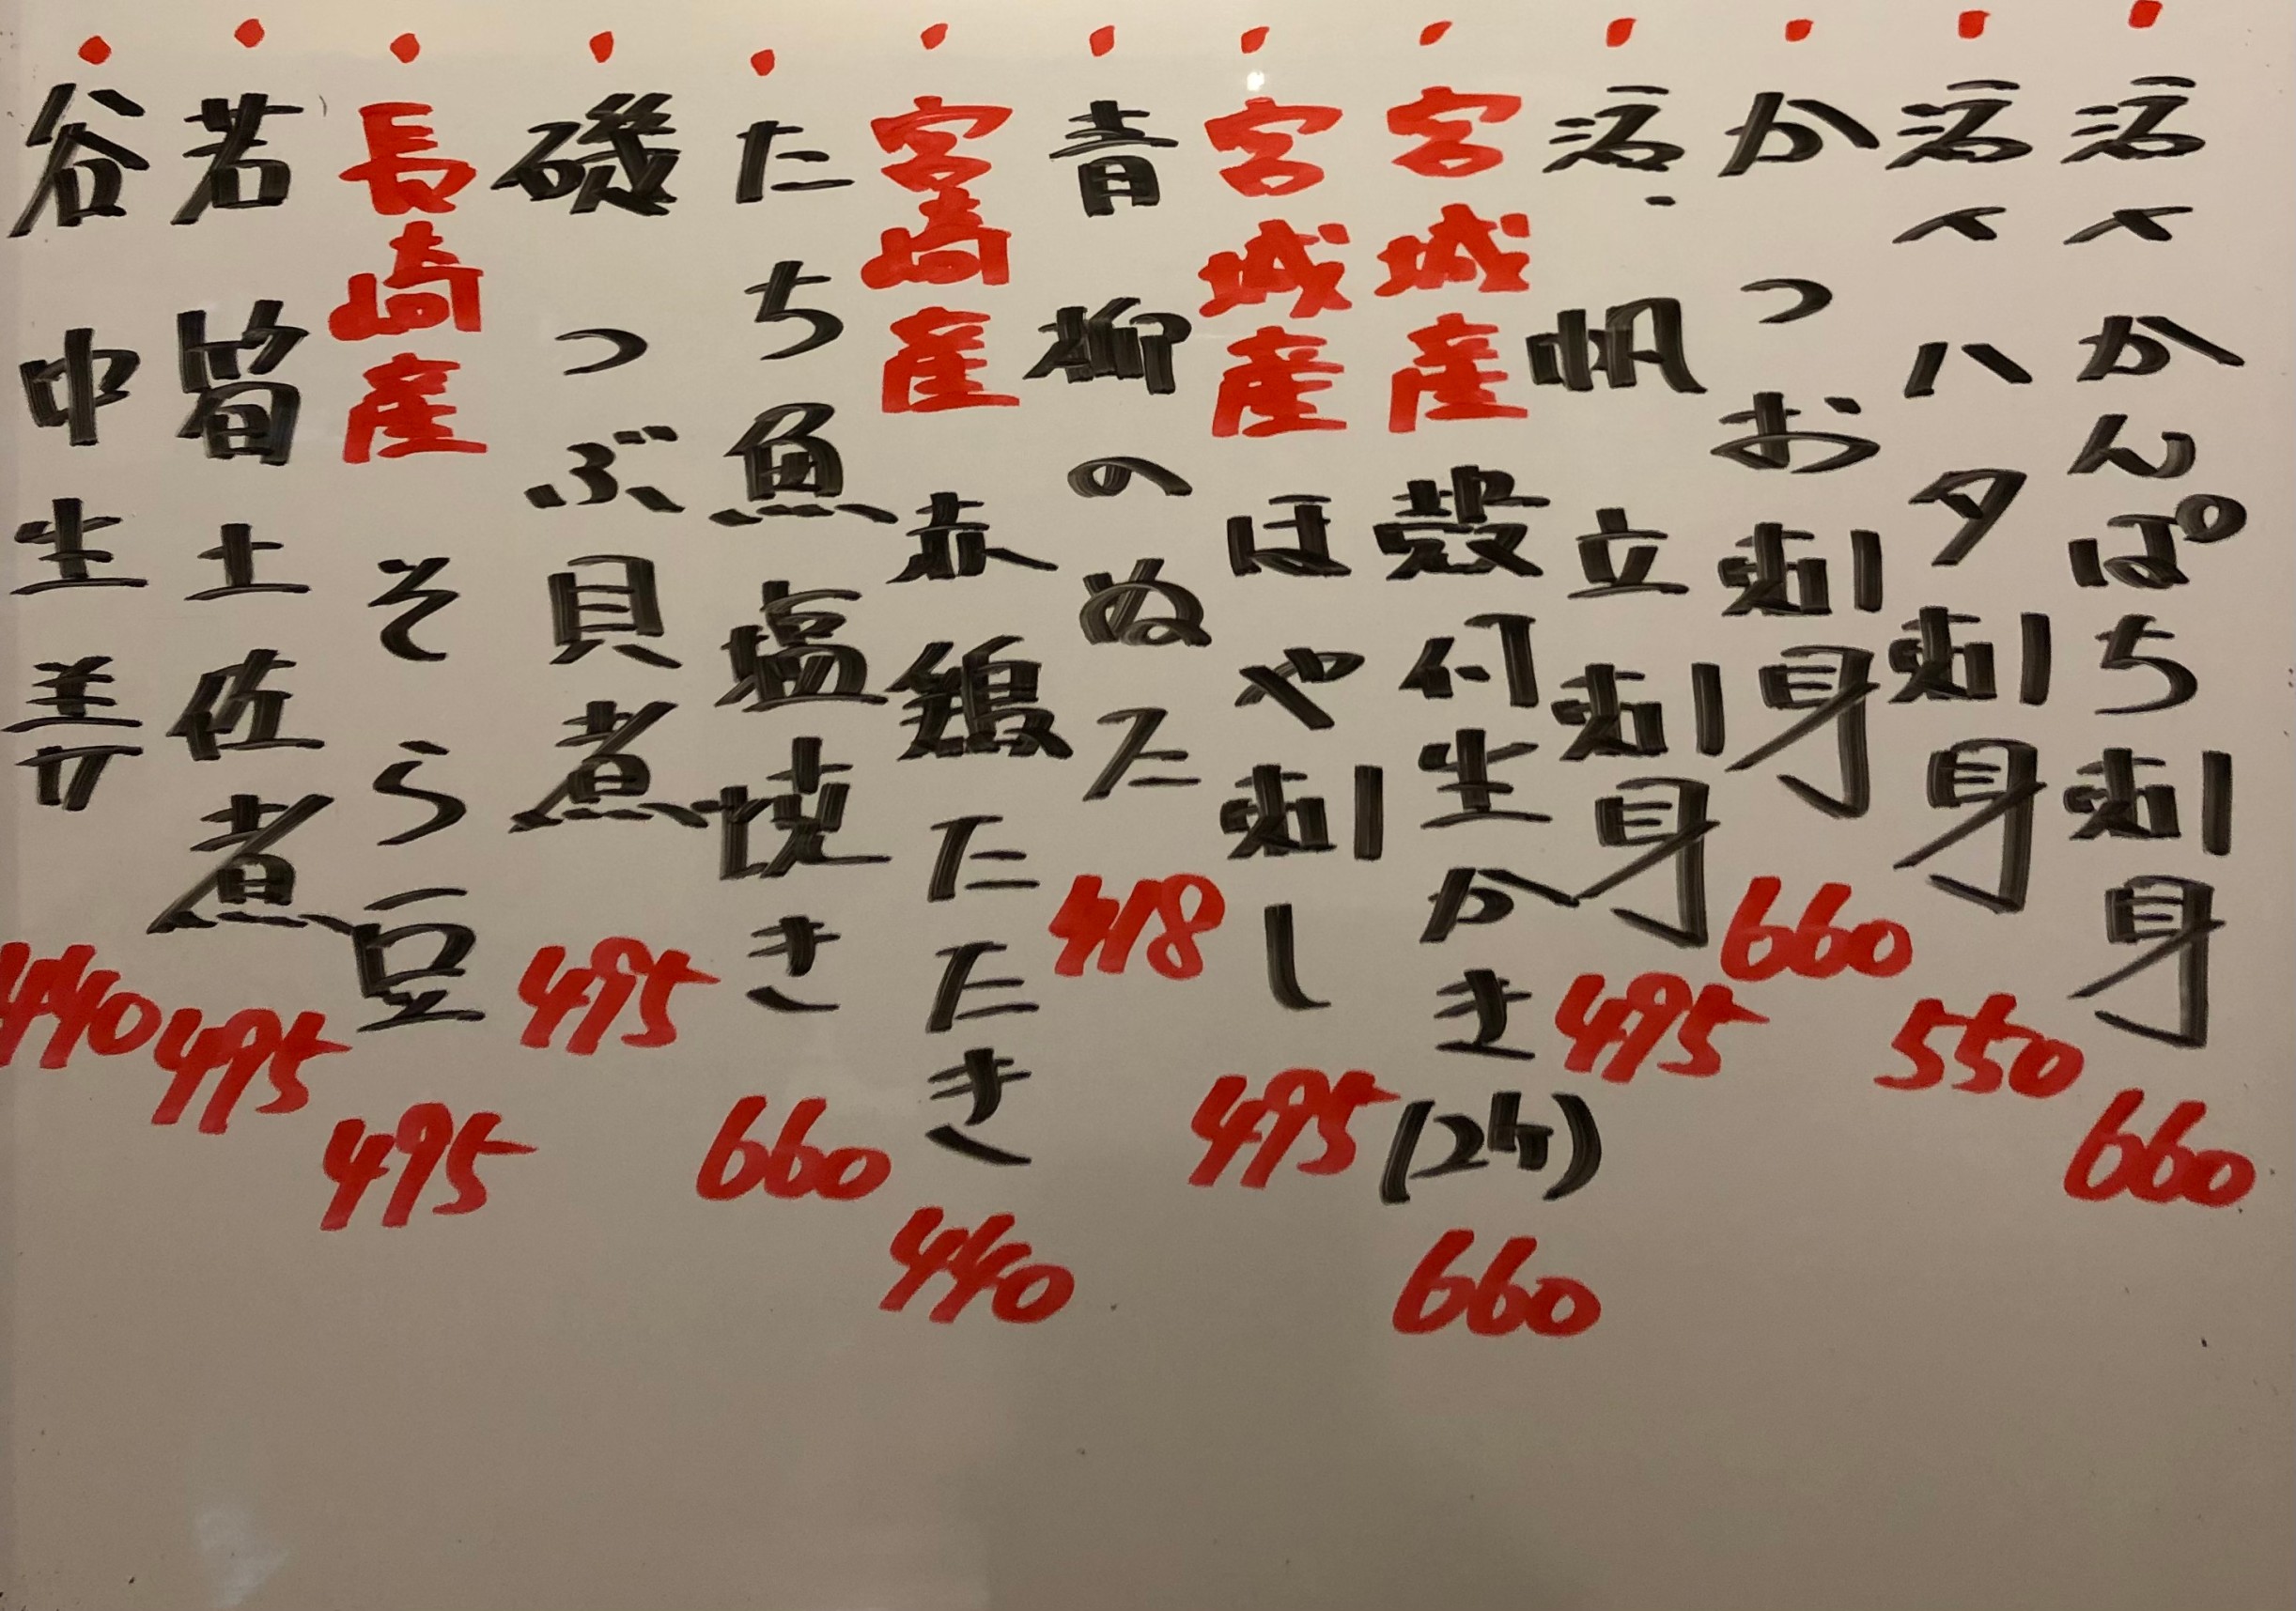 ・活〆かんぱち刺身 660
・活〆ハタ刺身 550
・かつお刺身 660
・活・帆立刺身 495
・宮城産殻付生かき(2ケ) 660
・宮城産ほや刺し 495
・青柳のぬた 418
・宮崎産赤鶏たたき 440
・たち魚塩焼き 660
・磯つぶ貝煮 495
・長崎産そら豆 495
・若筍土佐煮 495
・谷中生姜 440